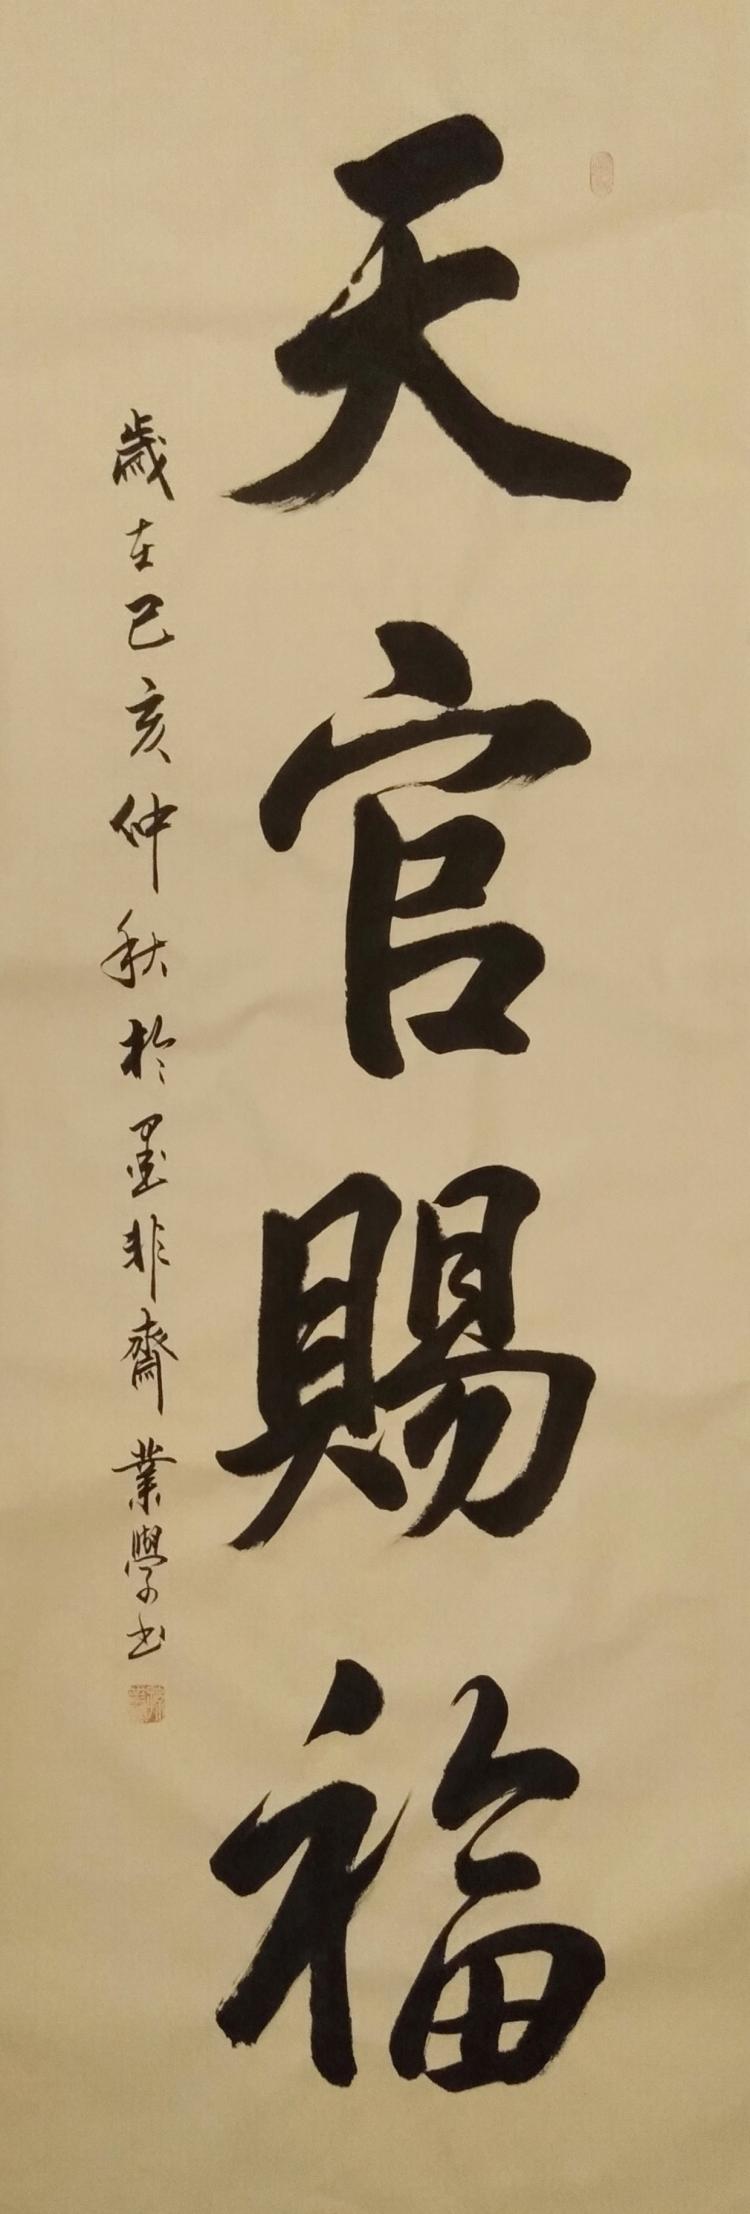 天官賜福
歲在己亥仲秋於墨非齋業學书